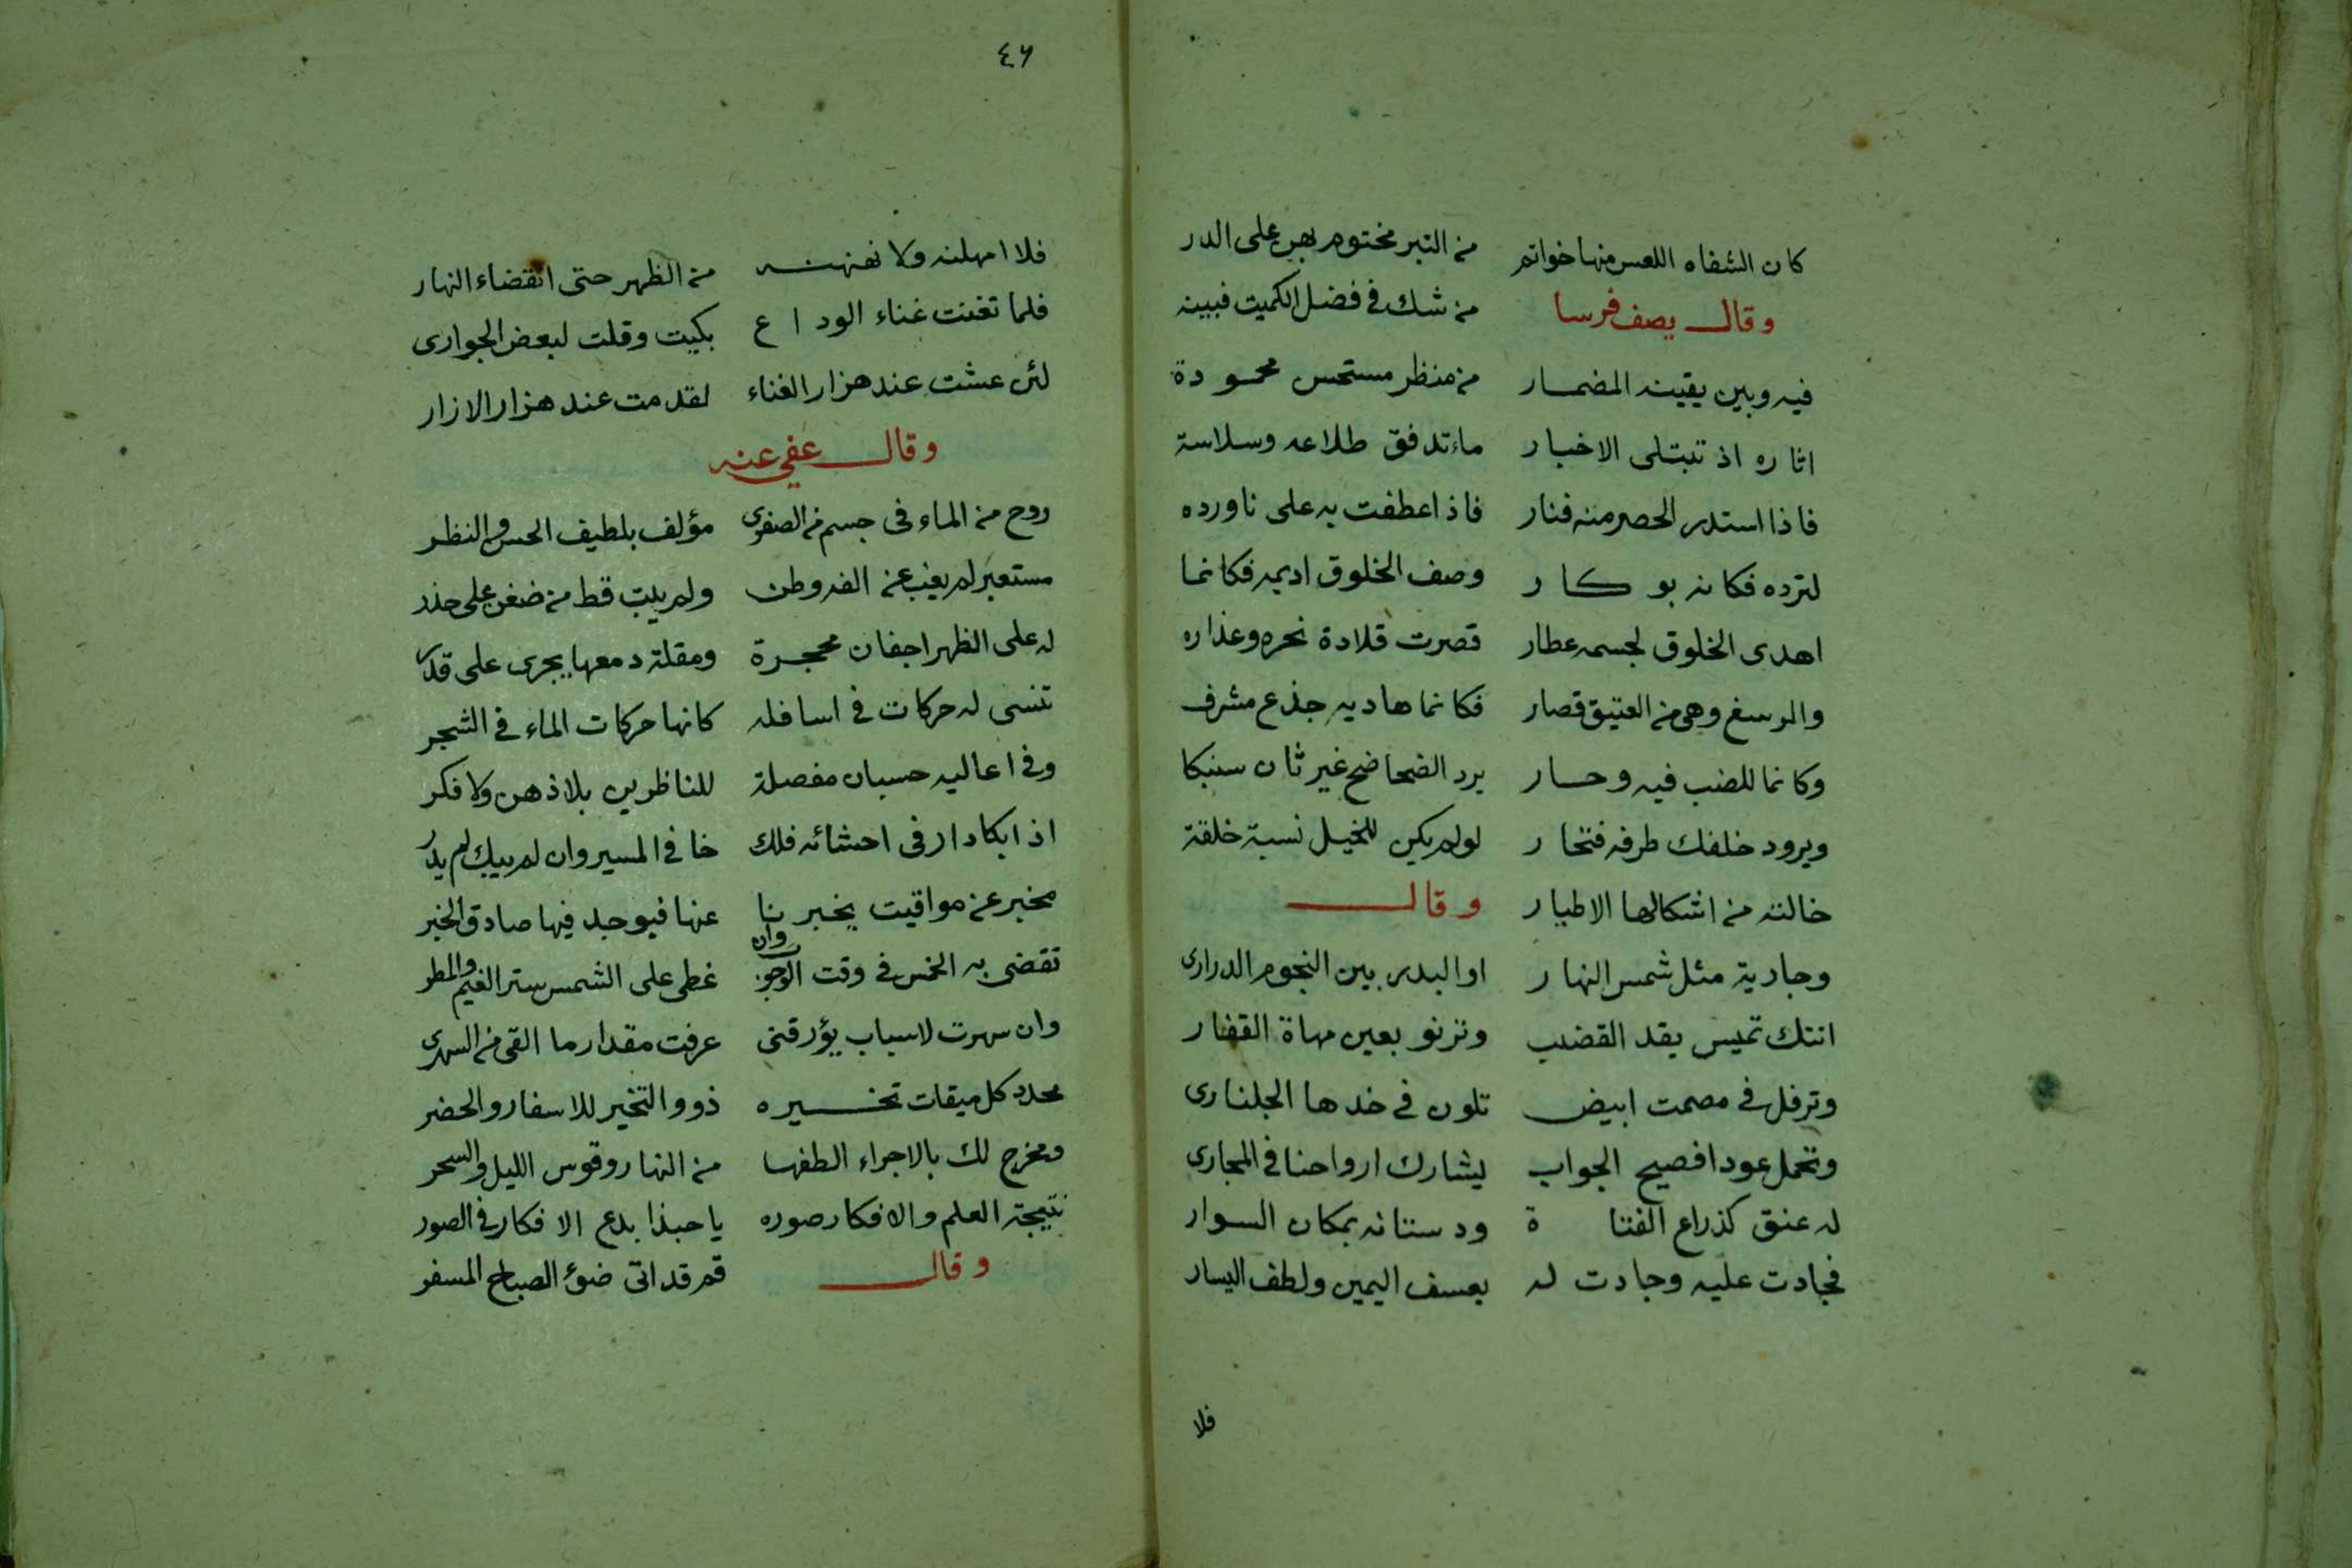 كان الشفاه اللعس منها خواتم من التبر مختوم بهن على الدر
وقال يصف فرسا من شك في فضل الكميت فبينه
فيه وبين يقينه المضمار من منظر مستحسن محمودة
اثاره اذ تبتلى الاخبار ماء تدفق طلاعه وسلاسة
فاذا استدر الحصر منه فنار فاذا عطفت به على ناورده
لترده فكانه بو كار وصف الخلوق اديمه فكانما
اهدى الخلوق لجسمه عطار قصرت قلادة نحره وعذاره
والرسغ وهي من العتيق قصار فكانما هاديه جذع مشرف
وكانما للضب فيه وحار يرد الضحاضح غير ثان سنبكا
ويرود خلفك طرفه فتخار لولم يكن للخيل نسبة خلقة
خالته من اشكالها الاطيار وقال
وجارية مثل شمس النهار او البدر بين النجوم الدرارى
اتتك تميس بقد القضيب وترنو بعين مهاة القفار
وترفل في مصمت ابيض تلون في خدها الجلنارى
وتحمل عودا فصيح الجواب يشارك ارواحنا في المجارى
له عنق كذراع الفتاة ودستانه بمكان السوار
فجادت عليه وجادت له بعسف اليمين ولطف اليسار
فلا
٤٦
فلا امهلته ولا نهنهته من الظهر حتى انقضاء النهار
فلما تغنت غناء الوداع بكيت وقلت لبعض الجوارى
لئن عشت عند هزار الغناء لقد مت عند هزار الازار
وقال عفى عنه
روح من الماء في جسم من الصفر مؤلف بلطيف الحس والنظر
مستعبر لم يغب عن الفه وطن ولم يبت قط من ضغن على حذر
له على الظهر اجفان محجرة ومقلة دمعها يجرى على قدر
تنسى له حركات في اسافله كانها حركات الماء في الشجر
وفي اعاليه حسبان مفصلة للناظرين بلا ذهن ولا فكر
اذا بكا دار في احشائه فلك خافى المسير وان لم يبك لم يدر
مخبر عن مواقيت يخبرنا عنها فيوجد فيها صادق الخبر
تقضى به الخمس في وقت الوجوب وان غطى على الشمس ستر الغيم والمطر
وان سهرت لاسباب يؤرقنى عرفت مقدار ما القى من السهر
محدد كل ميقات تخيره ذوو التخير للاسفار والحضر
ومخرج لك بالاجزاء الطفها من النهار وقوس الليل والسحر
نتيجة العلم والافكار صوره يا حبذا بدع الافكار في الصور
وقال قم قد اتى ضوء الصباح المسفر